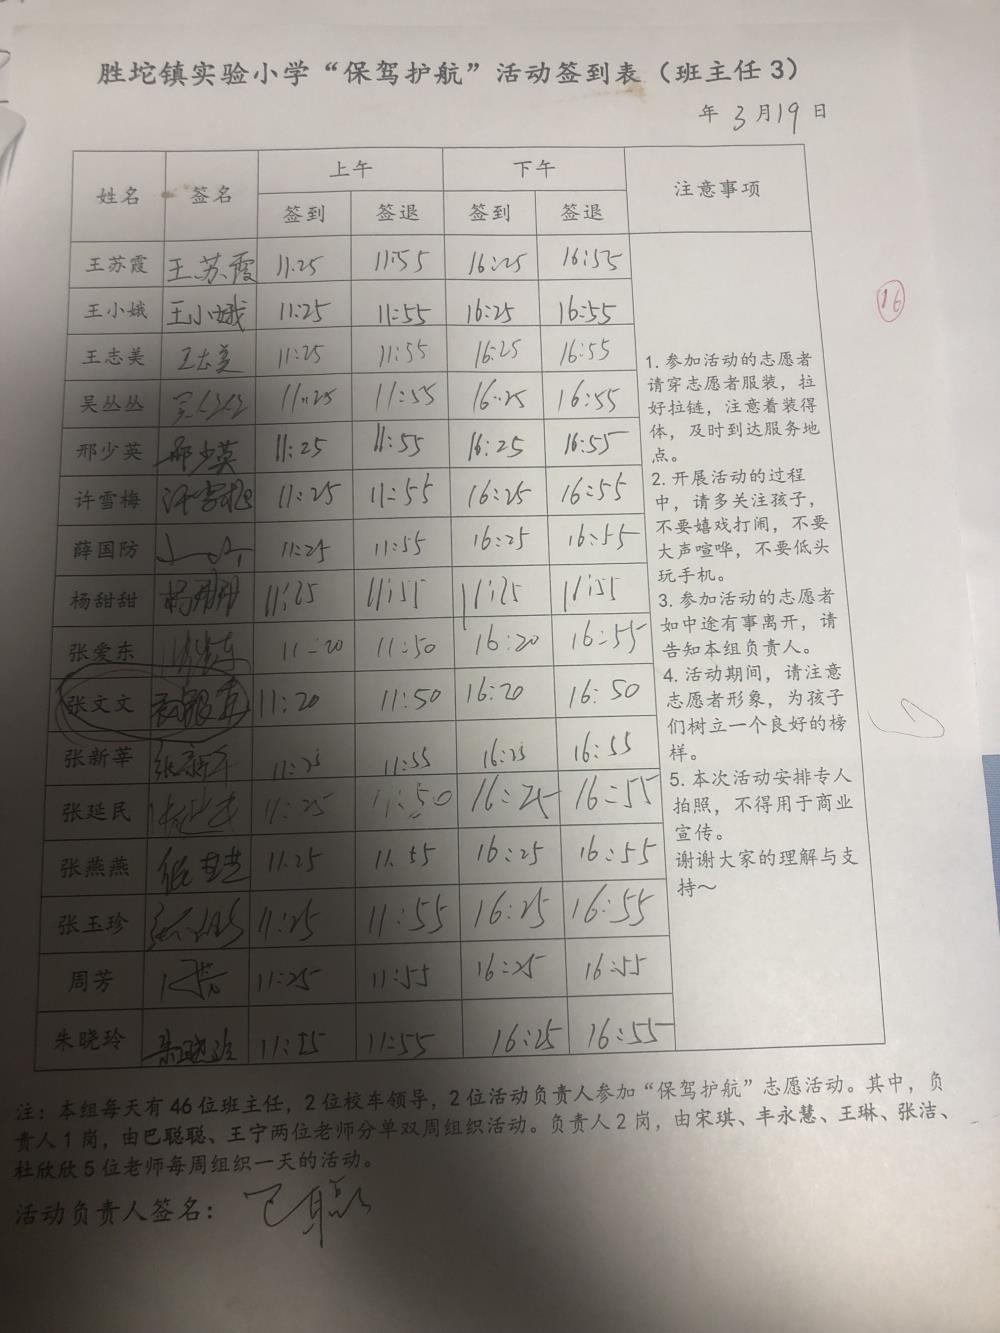 胜坨镇实验小学“保驾护航”活动签到表（班主任3）
年 3月19日
姓名 签名 上午 下午 注意事项
签到 签退 签到 签退
王苏霞 王苏霞 11:25 11:55 16:25 16:55
王小娥 王小娥 11:25 11:55 16:25 16:55
王志美 11:25 11:55 16:25 16:55
吴丛丛 11:25 11:55 16:25 16:55
邢少英 邢少英 11:25 11:55 16:25 16:55
许雪梅 11:25 11:55 16:25 16:55
薛国防 11:25 11:55 16:25 16:55
杨甜甜 杨甜甜 11:25 11:55
张爱东 11:20 11:50 16:20 16:55
张文文 11:20 11:50 16:20 16:50
张新莘 张新莘 11:25 11:55 16:25 16:55
张延民 11:25 11:50 16:25 16:55
张燕燕 11:25 11:55 16:25 16:55
张玉珍 11:25 11:55 16:25 16:55
周芳 11:25 11:55 16:25 16:55
朱晓玲 朱晓玲 11:55 16:25 16:55
1. 参加活动的志愿者
请穿志愿者服装，拉
好拉链，注意着装得
体，及时到达服务地
点。
2. 开展活动的过程
中，请多关注孩子，
不要嬉戏打闹，不要
大声喧哗，不要低头
玩手机。
3. 参加活动的志愿者
如中途有事离开，请
告知本组负责人。
4. 活动期间，请注意
志愿者形象，为孩子
们树立一个良好的榜
样。
5. 本次活动安排专人
拍照，不得用于商业
宣传。
谢谢大家的理解与支
持～
16
注：本组每天有46位班主任，2位校车领导，2位活动负责人参加“保驾护航”志愿活动。其中，负
责人1岗，由巴聪聪、王宁两位老师分单双周组织活动。负责人2岗，由宋琪、丰永慧、王琳、张洁、
杜欣欣5位老师每周组织一天的活动。
活动负责人签名：